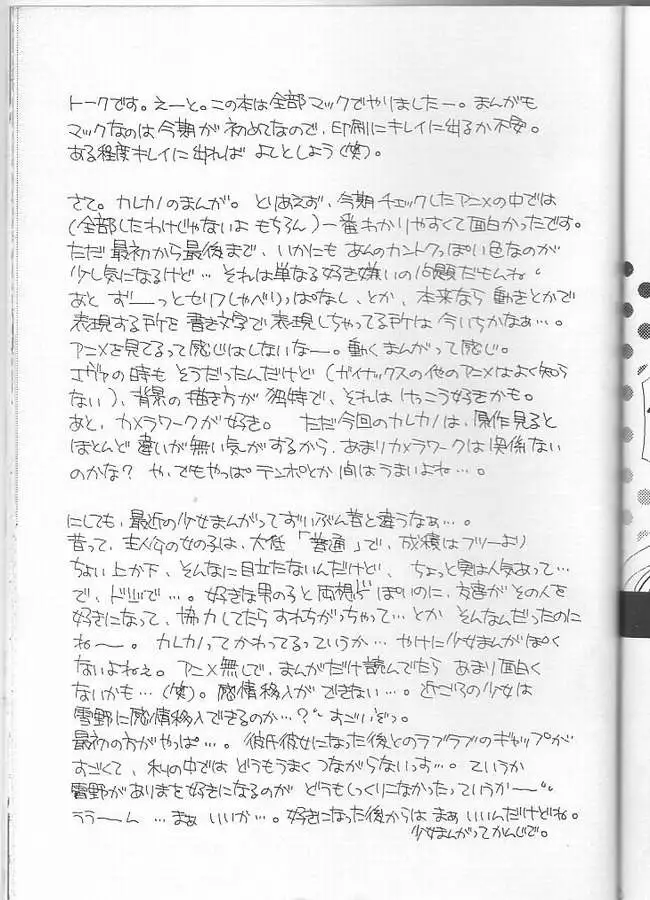 トークです。えーと。この本は全部マックでやりましたー。まんがも
マックなのは今期が初めてなので、印刷にキレイに出るか不安。
ある程度キレイに出れば よしとしよう(笑)。
さて。カレカノのまんが。とりあえず、今期チェックしたアニメの中では
(全部したわけじゃないよ もちろん)一番わかりやすくて面白かったです。
ただ最初から最後まで、いかにも あんのカントクっぽい色なのが
少し気になるけど… それは単なる好き嫌いの問題だもんね〃
あと ずーっとセリフしゃべりっぱなし、とか、本来なら 動きとかで
表現する所を 書き文字で表現しちゃってる所は 今いちかなぁ…。
アニメを見てるって感じはしないなー。動くまんがって感じ。
エヴァの時も そうだったんだけど(ガイナックスの他のアニメはよく知ら
ない)、背景の描き方が 独特で、それは けっこう好きかも。
あと、カメラワークが好き。 ただ今回のカレカノは、原作見ると
ほとんど違いが無い気がするから、あまりカメラワークは関係ない
のかな? や、でもやっぱ テンポとか 間はうまいよね…。
にしても、最近の少女まんがってずいぶん昔と違うなぁ…。
昔って、主人公の女の子は、大低「普通」で、成積はフツーより
ちょい上か下、そんなに目立たないんだけど、ちょっと実は人気あって…
で、ドジで…。好きな男の子と両想いぽいのに、友達がその人を
好きになって、協力してたら すれちがっちゃって…とか そんなんだったのに
ねー。カレカノってかわってるっていうか… やけに少女まんがぽく
ないよねぇ。アニメ無しで、まんがだけ読んでたら あまり面白く
ないかも…(笑)。感情移入ができない…。近ごろの少女は
雪野に感情移入できるのか…?〃 すごいぞっ。
最初の方がやっぱ…。彼氏彼女になった後とのラブラブのギャップが
すごくて、私の中では どうもうまく つながらないっす…。ていうか
雪野がありまを好きになるのが どうもしっくりこなかったっていうかー〃
ううーん …まぁ いいか…。好きになった後からは まぁ いいんだけどね。
少女まんがってかんじで。